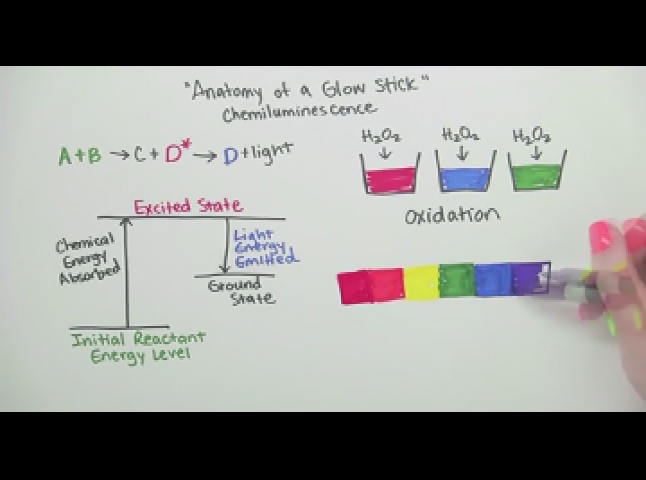 "Anatomy of a Glow Stick"
Chemiluminescence
A+B → C + D* → D + light
H₂O₂ H₂O₂ H₂O₂
Oxidation
Excited State
Chemical
Energy
Absorbed
Light
Energy
Emitted
Ground
State
Initial Reactant
Energy Level